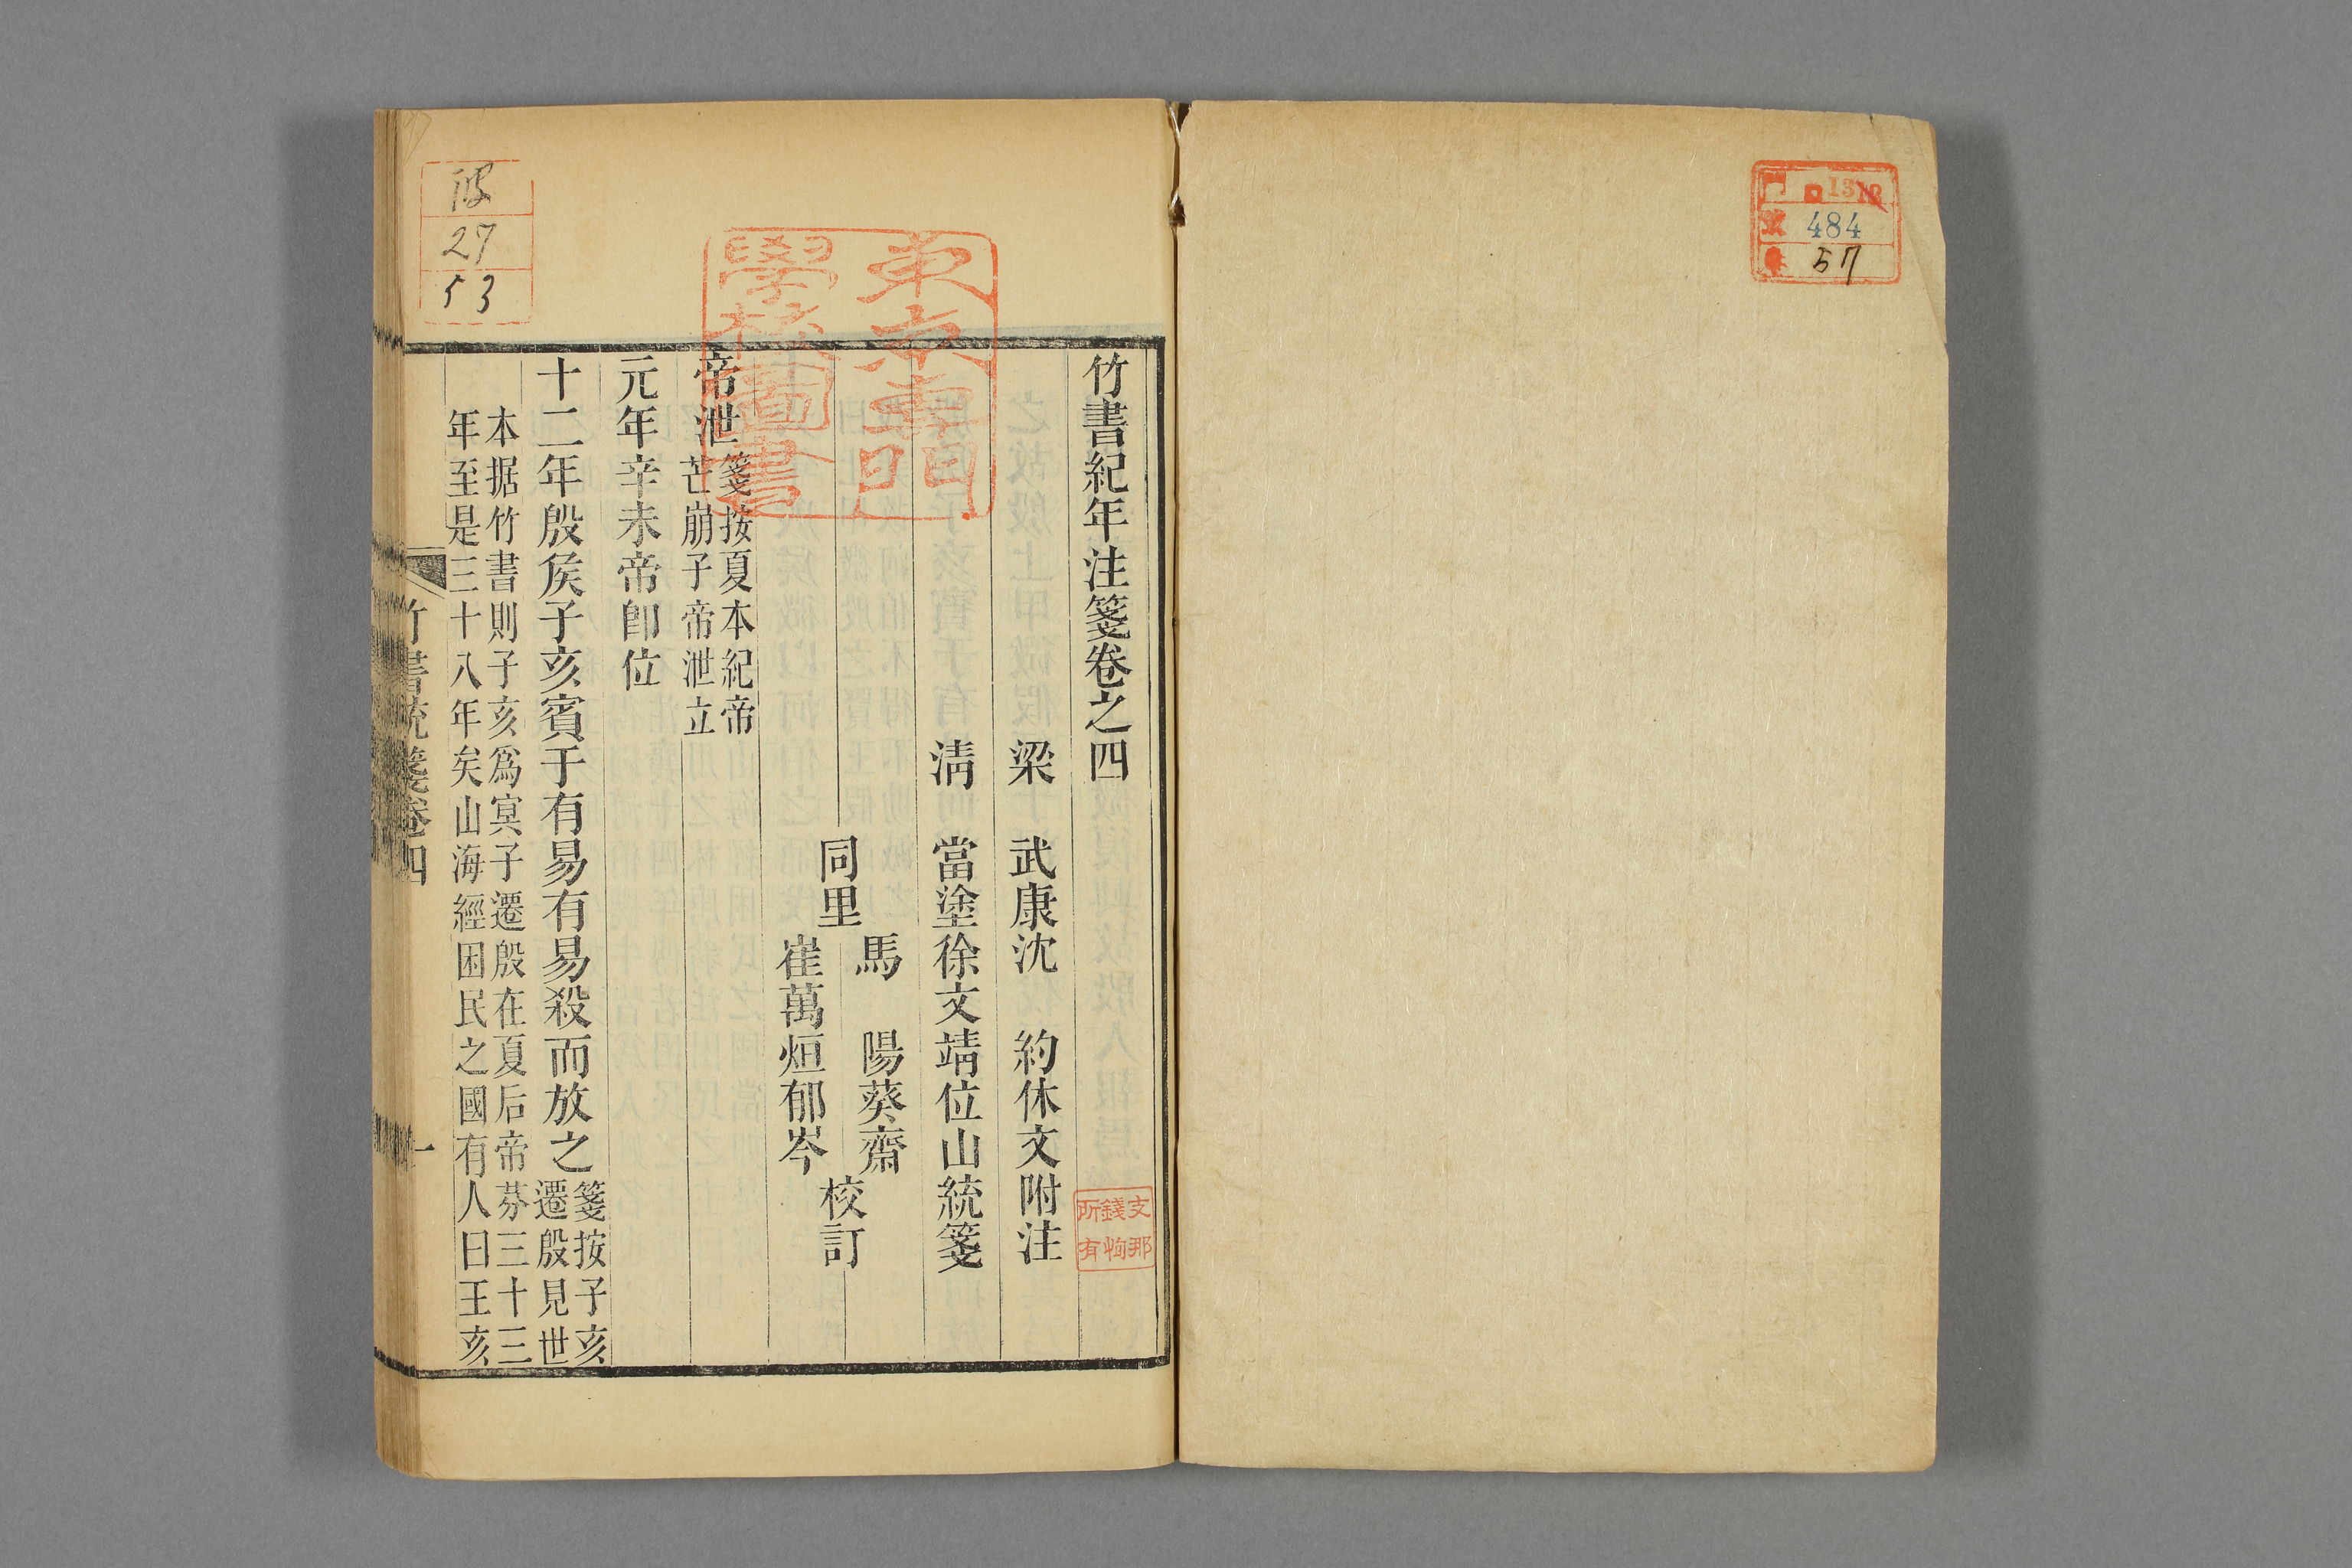 1312
484
57
竹書紀年注箋卷之四
梁 武康沈 約休文附注
清 當塗徐文靖位山統箋
同里
馬 陽葵齋
崔萬烜郁岑
校訂
帝泄
箋按夏本紀帝
芒崩子帝泄立
元年辛未帝卽位
十二年殷侯子亥賓于有易有易殺而放之
箋按子亥
遷殷見世
本据竹書則子亥爲冥子遷殷在夏后帝芬三十三
年至是三十八年矣山海經困民之國有人曰王亥
竹書統箋卷四
一
東京專門
學校圖書
支那
錢恂
所有
27
53